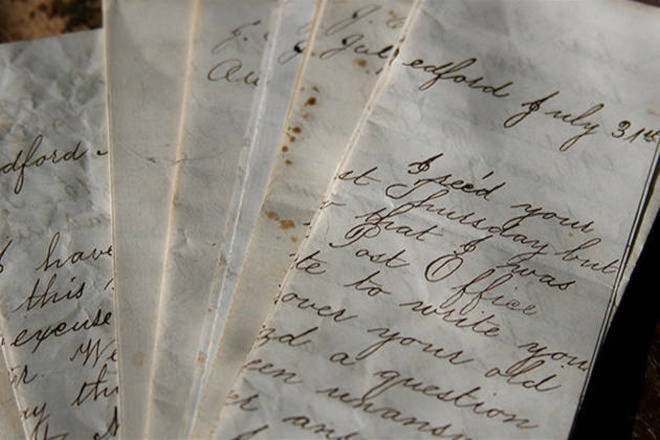 dford
I have
this
excuse
We
J.
Au
J.
Jul
edford July 31st
I rec'd your
st Thursday but
that I was
Post Office
te to write you
over your old
a question
een unans